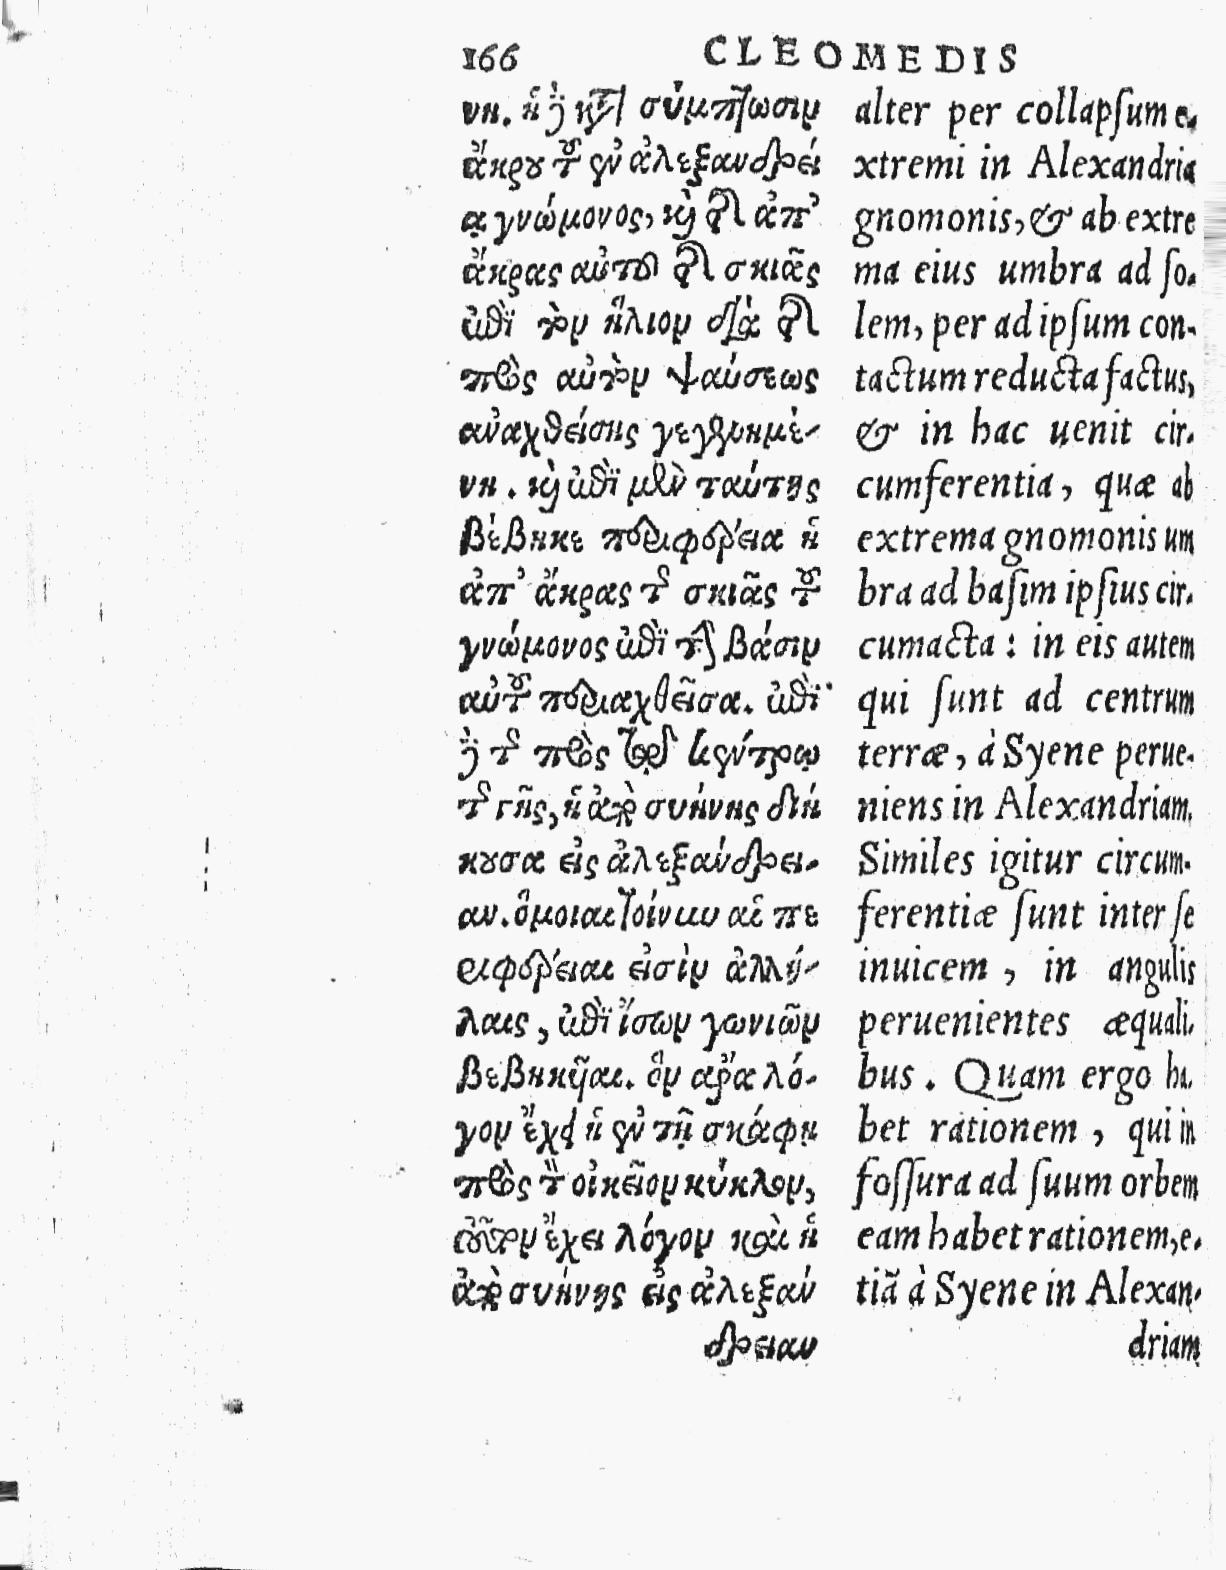 166 CLEOMEDIS
νη. ἡ δὲ κατὰ σύμπτωσιν
ἄκρου τοῦ ἐν ἀλεξανδρεί
ᾳ γνώμονος, καὶ τῆς ἀπ'
ἄκρας αὐτοῦ τῆς σκιᾶς
ἐπὶ τὸν ἥλιον διὰ τῆς
πρὸς αὐτὸν ψαύσεως
ἀναχθείσης γεγενημέ-
νη. καὶ ἐπὶ μὲν ταύτης
βέβηκε περιφέρεια ἡ
ἀπ' ἄκρας τῆς σκιᾶς τοῦ
γνώμονος ἐπὶ τὴν βάσιν
αὐτοῦ περιαχθεῖσα. ἐπὶ
δὲ τῆς πρὸς τῷ κέντρῳ
τῆς γῆς, ἡ ἀπὸ συήνης διή
κουσα εἰς ἀλεξάνδρει-
αν. ὅμοιαι τοίνυν αἱ πε
ριφέρειαι εἰσὶν ἀλλή-
λαις, ἐπὶ ἴσων γωνιῶν
βεβηκῆαι. ὃν ἄρα λό-
γον ἔχει ἡ ἐν τῇ σκάφῃ
πρὸς τὸν οἰκεῖον κύκλον,
τοῦτον ἔχει λόγον καὶ ἡ
ἀπὸ συήνης εἰς ἀλεξάν
δρειαν
alter per collapſum e-
xtremi in Alexandria
gnomonis, & ab extre
ma eius umbra ad ſo-
lem, per ad ipſum con-
tactum reducta factus,
& in hac uenit cir-
cumferentia, quæ ab
extrema gnomonis um
bra ad baſim ipſius cir-
cumacta: in eis autem
qui ſunt ad centrum
terræ, à Syene perue-
niens in Alexandriam.
Similes igitur circum-
ferentiæ ſunt inter ſe
inuicem, in angulis
peruenientes æquali-
bus. Quam ergo ha-
bet rationem, qui in
foſſura ad ſuum orbem
eam habet rationem, e-
tiã à Syene in Alexan-
driam